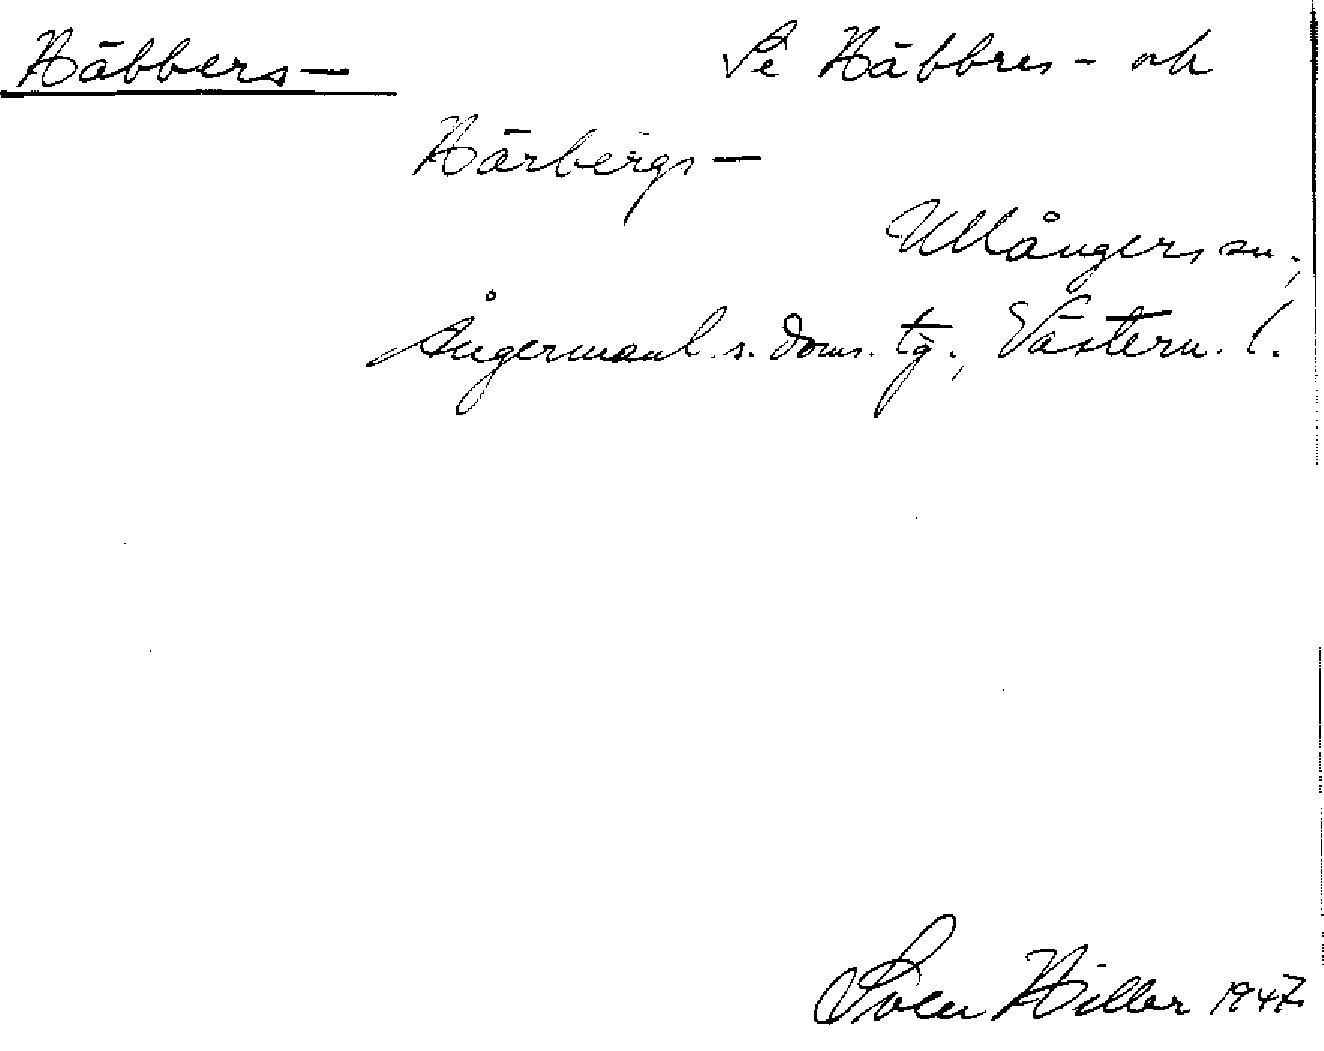 Häbbers-
Se Häbbres- och
Härbergs-
Ullångers sn.,
Ångermanl. s. doms. tg., Västern. l.
Sven Hiller 1947